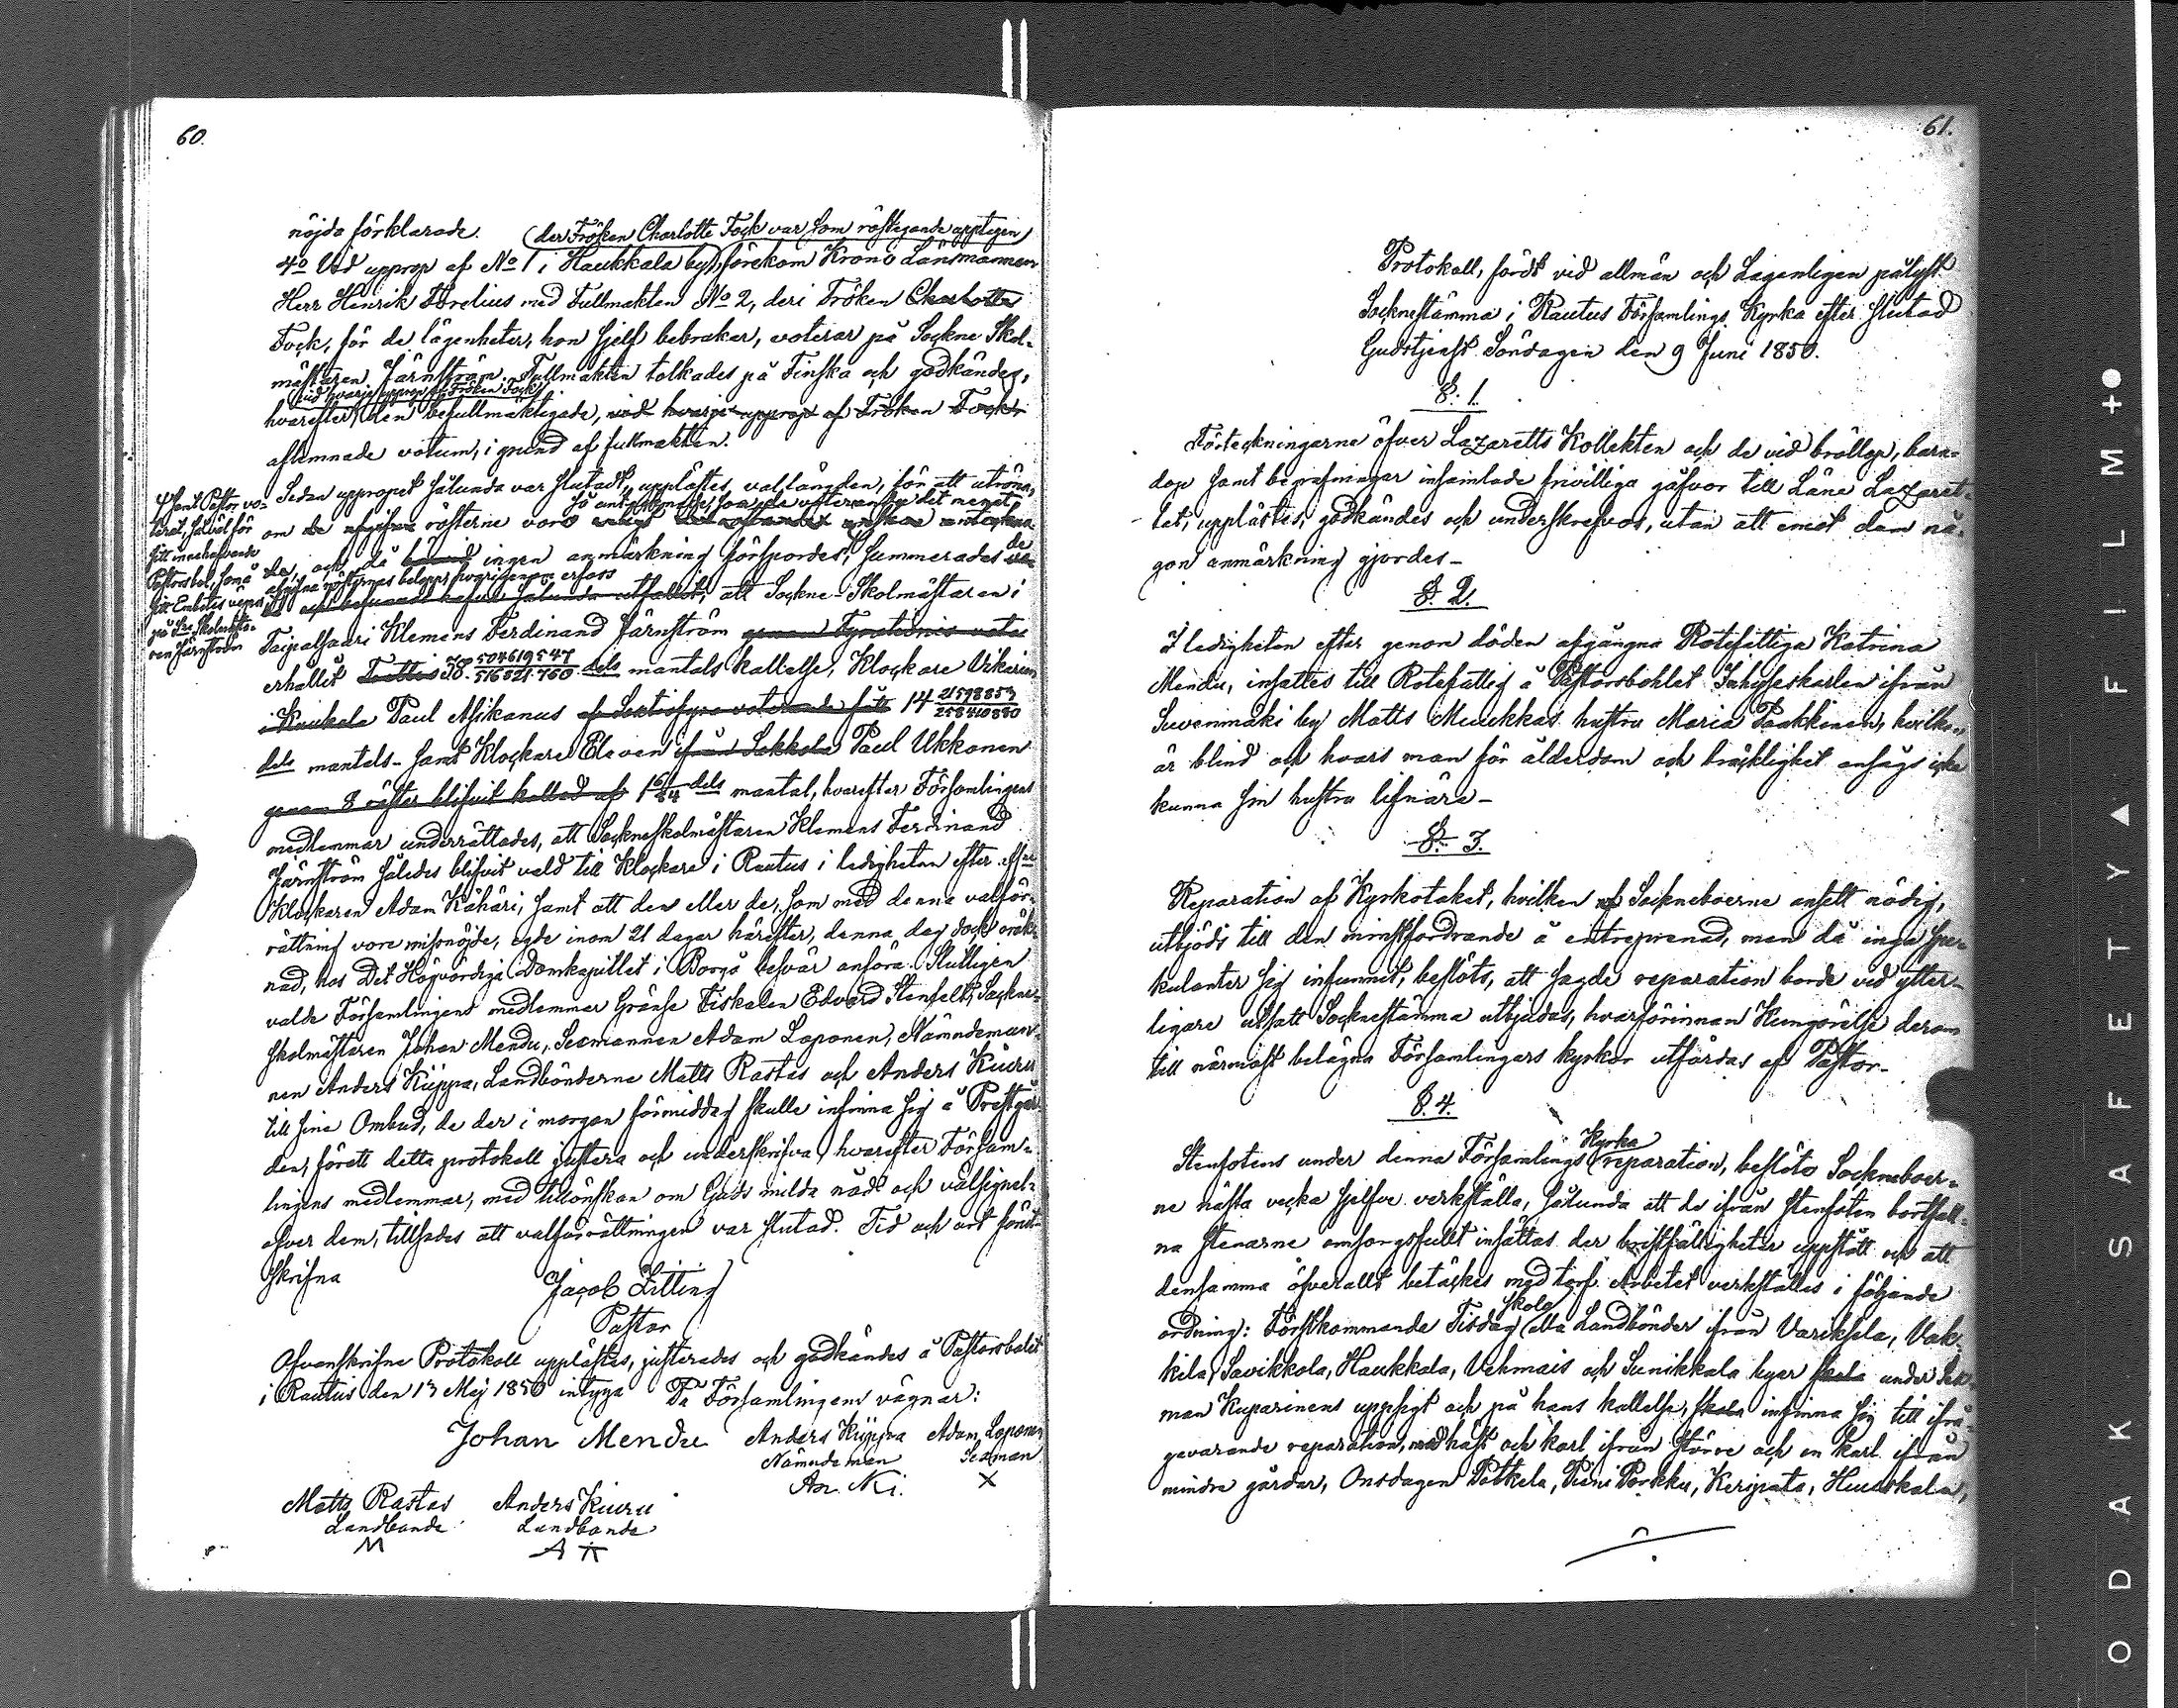 60.
nöjda förklarade. (der Fröken Charlotte Fock var som röstegande upptagen)
4o Vid upprop af No 1 i Haukkala by, förekom Krono Länsmannen
Herr Henrik Forelius med Fullmakten No 2, deri Fröken Charlotte
Fock, för de lägenheter, hon sjelf bebrukar, voterar på Sockne Skol-
mästaren Järnström. Fullmakten tolkades på Finska och godkändes,
vid hvarje upprop af Fröken Fock
hvarefter den befullmäktigade, vid hvarje upprop af Fröken Fock
aflemnade votum, i grund af fullmakten.
Sedan uppropet sålunda var slutadt, upplästes vallängden, för att utröna,
så antecknade, som de
om de rösterne voro
de, och då ingen anmärkning förspordes, summerades de
afgifna rösternas belopp,
att Sockne-Skolmästaren i
samt Pastor vo-
terat, såväl för
sitt innehafvande
Pastorsbol, som å
sitt Embetes vägnar
på Skolmästa-
ren Järnström
Taipalsaari Klemens Ferdinand Järnström
erhållit 38 504619547/516821760 dels mantals kallelse, Klockare Vikarien
i Kaukola Paul Asikanus 14 21598853/258410880
dels mantals- samt Klockare Eleven ifrån Sakkola Paul Ukkonen
genom 8 röster blifvit kallad af 1 61/84 dels mantal, hvarefter Församlingens
medlemmar underrättades, att Sockneskolmästaren Klemens Ferdinand
Järnström således blifvit vald till Klockare i Rautus i ledigheten efter
Klockaren Adam Kähäri, samt att den eller de, som med denna valför-
rättning vore missnöjde, egde inom 21 dagar härefter, denna dag dock oräk-
nad, hos Det Högvördiga Domkapitlet i Borgå besvär anföra. Slutligen
valde Församlingens medlemmar Gränse Fiskalen Edvard Stenfelt, Sockne-
skolmästaren Johan Mendu, Sexmannen Adam Loponen, Nämndeman-
nen Anders Küppa, Landbönderne Matts Rastas och Anders Kiuru
till sine Ombud, de der i morgon förmiddag skulle infinna sig å Prestgår-
den, föratt detta protokoll justera och underskrifva, hvarefter Försam-
lingens medlemmar, med tillönskan om Guds milda nåd och välsignelse
öfver dem, tillsades att valförrättningen var slutad. Tid och ort förut-
skrifna
Jacob Zitting
Pastor
Ofvanskrifne Protokoll upplästes, justerades och godkändes å Pastorsbolet
i Rautus den 13 Maj 1850 intyga På Församlingens vägnar:
Johan Mendu Anders Küppa Adam Loponen
Nämndeman Sexman
An. Ki. X
Matts Rastas Anders Kiuru
Landbonde Landbonde
M A K
61.
Protokoll, fördt vid allmän och Lagenligen pålyst
Socknestämma i Rautus Församlings Kyrka efter slutad
Gudstjenst Söndagen den 9 Juni 1850.
§. 1.
Förteckningarne öfver Lazaretts Kollekten och de vid bröllop, barn-
dop samt begrafningar insamlade frivilliga gåfvor till Läne Lazaret-
tet, upplästes, godkändes och underskrefvos, utan att emot dem nå-
gon anmärkning gjordes-
§. 2.
I ledigheten efter genom döden afgångna Rotefattiga Katrina
Mendu, insattes till Rotefattig å Pastorsbohlet Inhyseskarlen ifrån
Suvenmäki by Matts Muukkas hustru Maria Paakkinen, hvilken
är blind och hvars man för ålderdom och bräcklighet ansågs icke
kunna sin hustru lifnära-
§. 3.
Reparation af Kyrkotaket, hvilken af Sockneboerne ansett nödig,
utbjöds till den minstfordrande å entreprenad, men då inga Spe-
kulanter sig infunnit, beslöts, att sagde reparation borde vid ytter-
ligare utsatt Socknestämma utbjudas, hvarförinnan Kungörelse derom
till närmast belägna Församlingars kyrkor utfärdas af Pastor-
§. 4.
Stenfotens under denna Församlings Kyrka reparation, beslöto Sockneboer-
ne nästa vecka sjelfve verkställa, sålunda att de ifrån stenfoten bortfall-
na stenarne omsorgsfullt insättas der bristfälligheter uppstått och att
densamma öfverallt betäckes med torf. Arbetet verkställes i följande
ordning: Förstkommande Tisdag skola alla Landbönder ifrån Variksela, Vak-
kila, Savikkola, Haukkala, Vehmais och Sunikkala byar skola under Sex-
man Kuparinens uppsigt och på hans kallelse, skola infinna sig till ifrå-
gavarande reparation, med häst och karl ifrån större och en karl ifrån
mindre gårdar, Onsdagen Potkela, Pieni Porkku, Keripata, Huuskala,
O D A K S A F E T Y F I L M